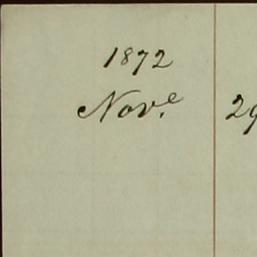 1872
Nov.e 29